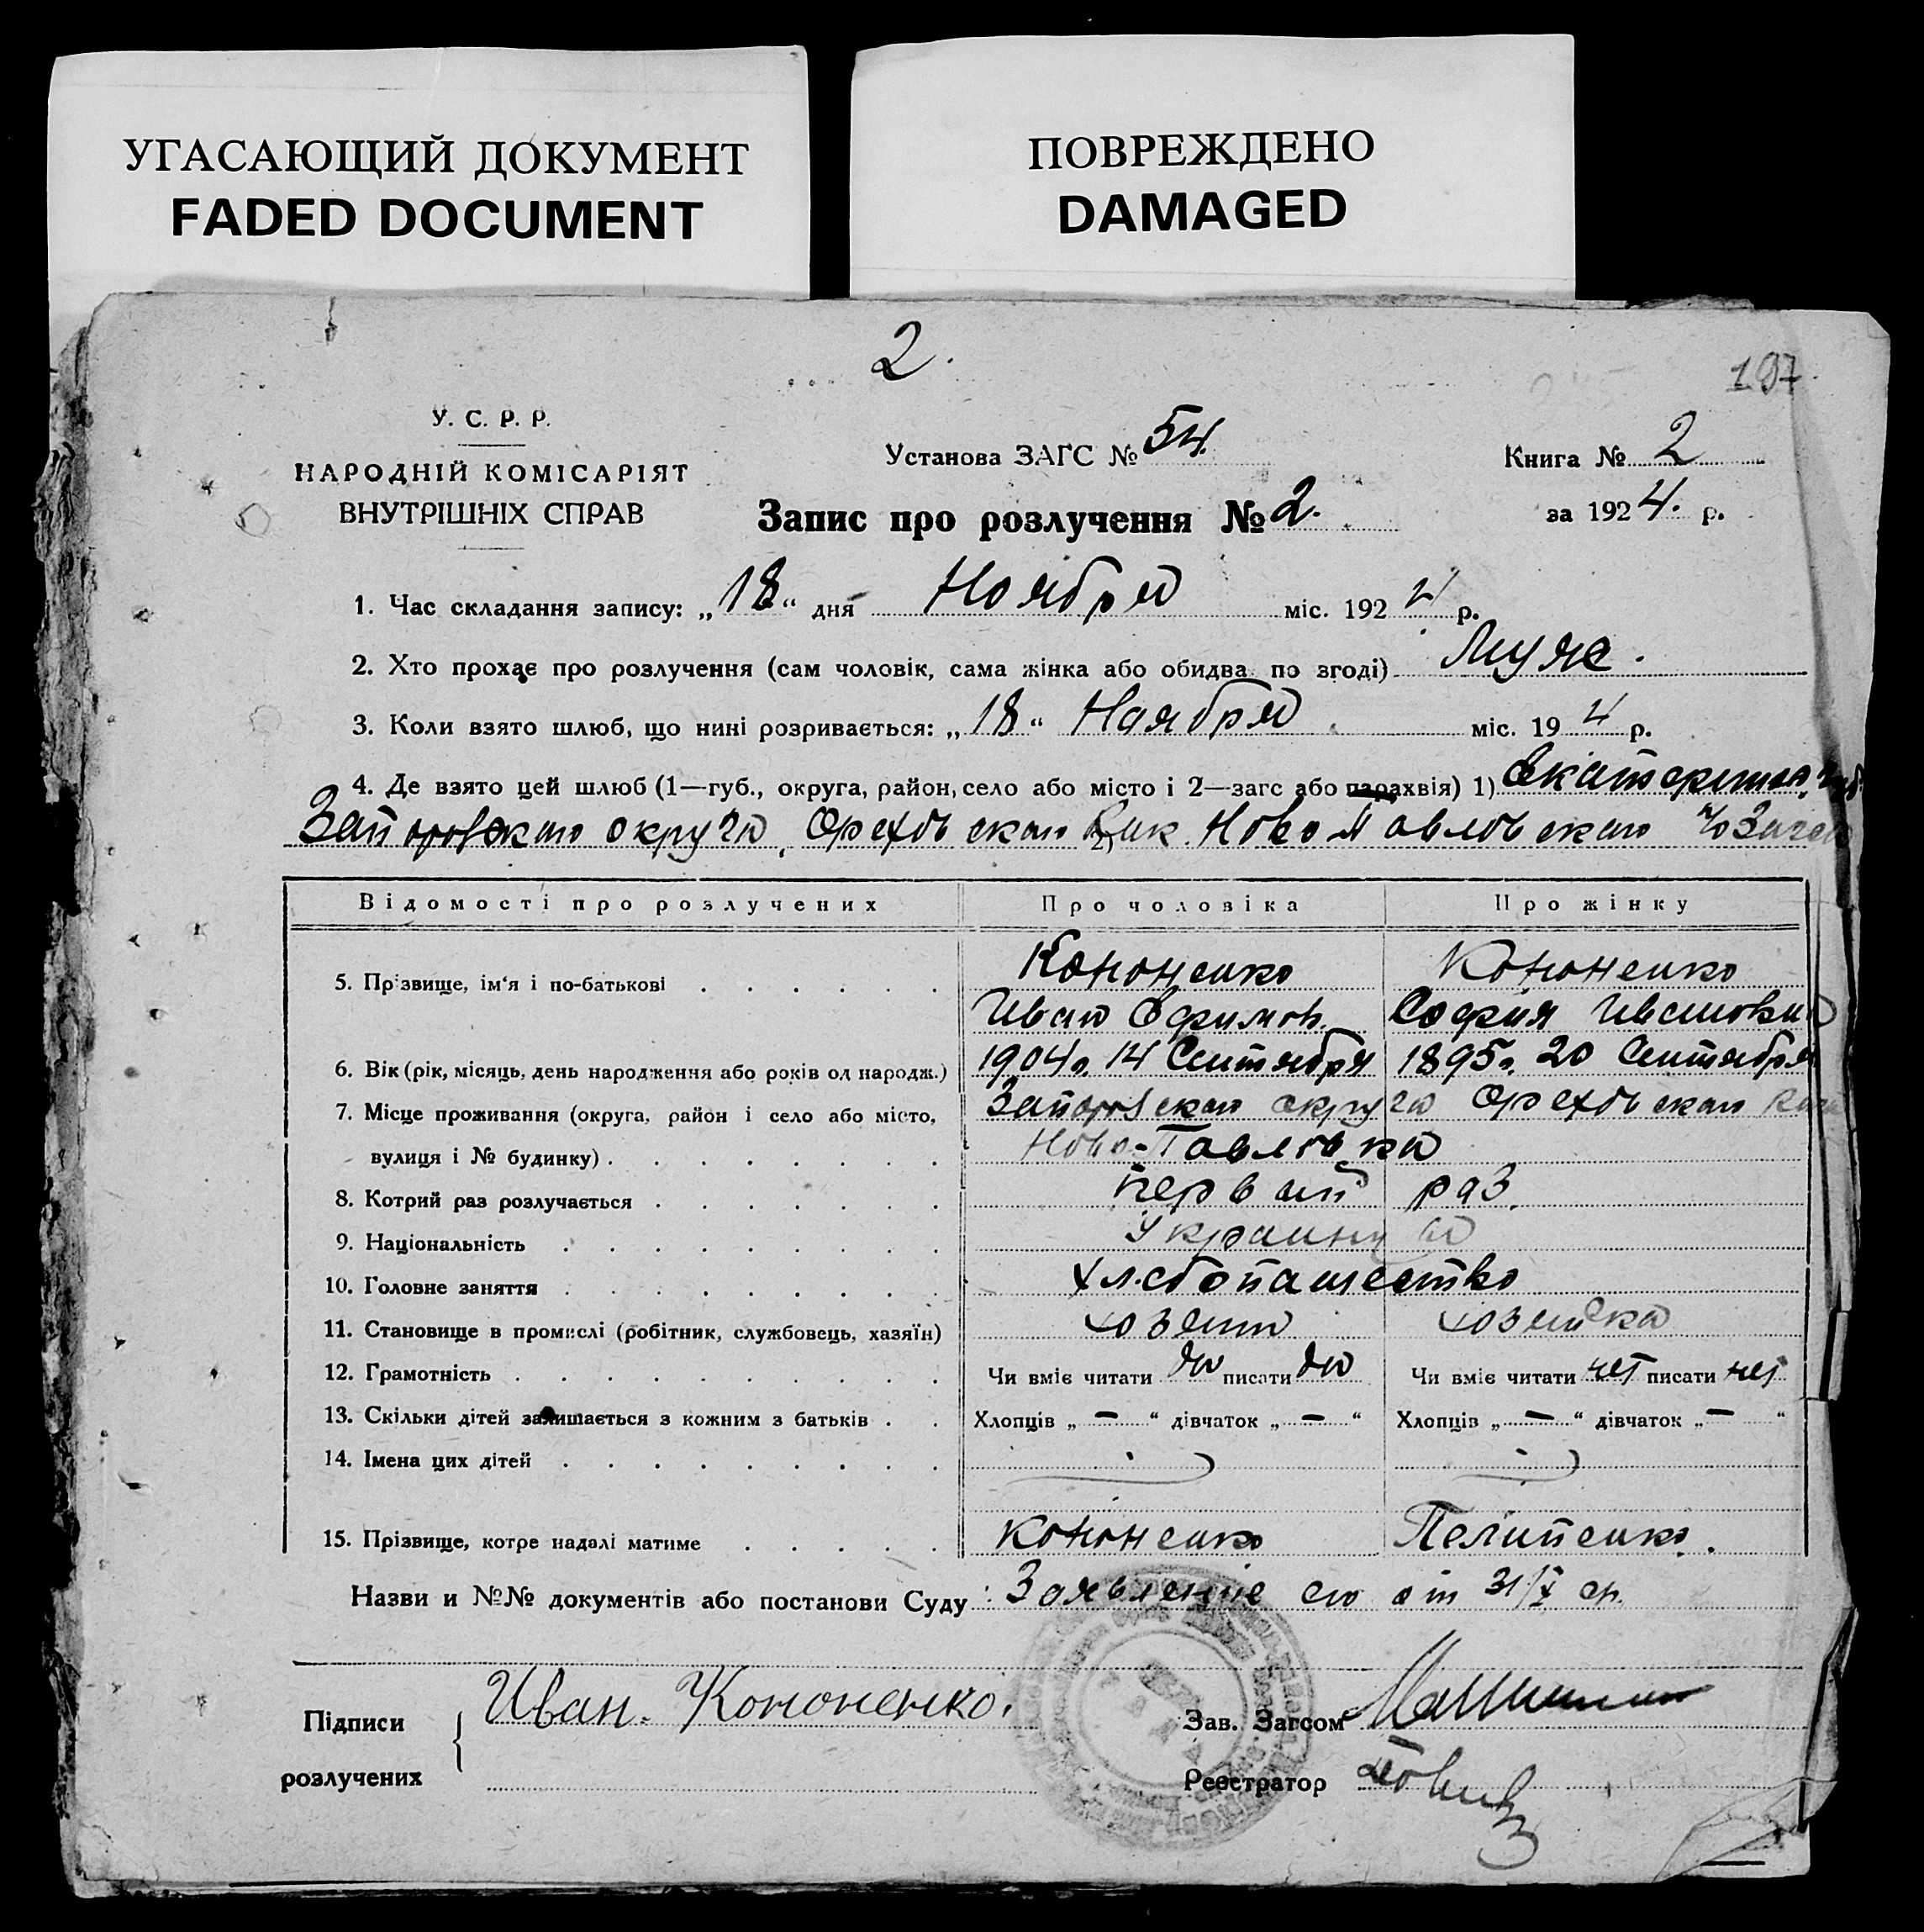 УГАСАЮЩИЙ ДОКУМЕНТ
FADED DOCUMENT
ПОВРЕЖДЕНО
DAMAGED
2.
197
У. С. Р. Р.
НАРОДНІЙ КОМІСАРІЯТ
ВНУТРІШНІХ СПРАВ
Установа ЗАГС № 54.
Книга № 2
за 1924. р.
Запис про розлучення № 2.
1. Час складання запису: „18“ дня Ноября міс. 1924 р.
2. Хто прохає про розлучення (сам чоловік, сама жінка або обидва по згоді) Муж.
3. Коли взято шлюб, що нині розривається: „18“ Наября міс. 19 4 р.
4. Де взято цей шлюб (1—губ., округа, район, село або місто і 2—загс або парахвія) 1) Екатеринос. губ.
Запоровскаго округа, Ореховскаго 2) Ново Павловскаго
Відомості про розлучених
Про чоловіка
Про жінку
5. Прізвище, ім'я і по-батькові
Кононенко
Кононенко
Иван Ефимов.
София Ивановна
6. Вік (рік, місяць, день народження або років од народж.)
1904г. 14 Сентября
1895г. 20 Сентября
7. Місце проживання (округа, район і село або місто,
Запоровскаго округа Ореховскаго
вулиця і № будинку)
Ново-Павловка
8. Котрий раз розлучається
Первый раз.
9. Національність
Украинцы
10. Головне заняття
Хлебопашество
11. Становище в промислі (робітник, службовець, хазяїн)
хозяин
хозяйка
12. Грамотність
Чи вміє читати да писати да
Чи вміє читати нет писати нет
13. Скільки дітей залишається з кожним з батьків
Хлопців „ — “ дівчаток „ — “
Хлопців „ — “ дівчаток „ — “
14. Імена цих дітей
15. Прізвище, котре надалі матиме
Кононенко
Пелипенко.
Назви и №№ документів або постанови Суду: Заявление его от 31/X ср.
Підписи
розлучених
Иван. Кононенко.
Зав. Загсом
Реєстратор